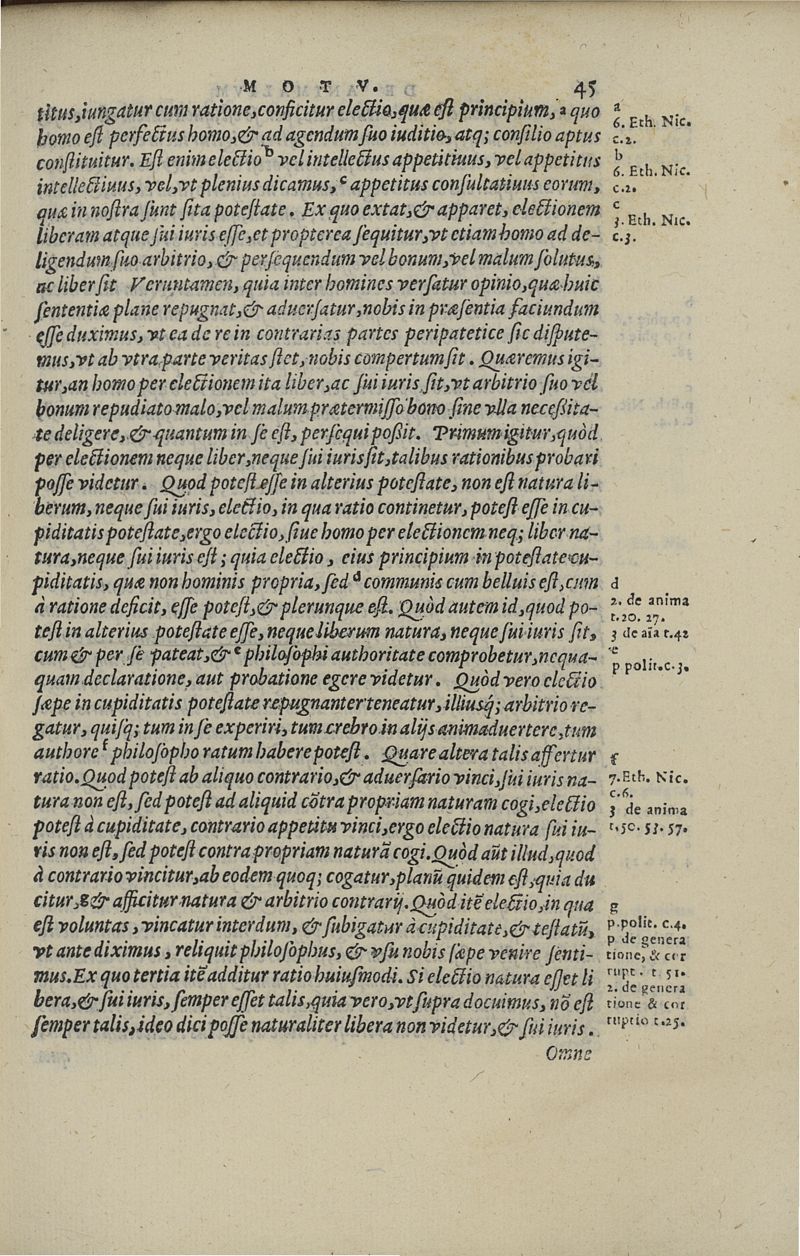 MOTV. 45
titus, iungatur cum ratione, conficitur electio, quæ est principium, ᵃ quo
homo est perfectus homo, & ad agendum suo iuditio, atq; consilio aptus
constituitur. Est enim electio ᵇ vel intellectus appetitiuus, vel appetitus
intellectiuus, vel, vt plenius dicamus, ᶜ appetitus consultatiuus eorum,
quæ in nostra sunt sita potestate. Ex quo extat, & apparet, electionem
liberam atque sui iuris esse, et propterea sequitur, vt etiam homo ad de-
ligendum suo arbitrio, & persequendum vel bonum, vel malum solutus,
ac liber sit Veruntamen, quia inter homines versatur opinio, quæ huic
sententiæ plane repugnat, & aduersatur, nobis in præsentia faciundum
esse duximus, vt ea de re in contrarias partes peripatetice sic dispute-
mus, vt ab vtra parte veritas stet, nobis compertum sit. Quæremus igi-
tur, an homo per electionem ita liber, ac sui iuris sit, vt arbitrio suo vel
bonum repudiato malo, vel malum prætermisso bono sine vlla necessita-
te deligere, & quantum in se est, persequi possit. Primum igitur, quòd
per electionem neque liber, neque sui iuris sit, talibus rationibus probari
posse videtur. Quod potest esse in alterius potestate, non est natura li-
berum, neque sui iuris, electio, in qua ratio continetur, potest esse in cu-
piditatis potestate, ergo electio, siue homo per electionem neq; liber na-
tura, neque sui iuris est; quia electio, eius principium in potestate cu-
piditatis, quæ non hominis propria, sed ᵈ communis cum belluis est, cum
à ratione deficit, esse potest, & plerunque est. Quòd autem id, quod po-
test in alterius potestate esse, neque liberum natura, neque sui iuris sit,
cum & per se pateat, & ᵉ philosophi authoritate comprobetur, nequa-
quam declaratione, aut probatione egere videtur. Quòd vero electio
sæpe in cupiditatis potestate repugnanter teneatur, illiusq́; arbitrio re-
gatur, quisq; tum in se experiri, tum crebro in alijs animaduertere, tum
authore ᶠ philosopho ratum habere potest. Quare altera talis affertur
ratio. Quod potest ab aliquo contrario, & aduersario vinci, sui iuris na-
tura non est, sed potest ad aliquid cõtra propriam naturam cogi, electio
potest à cupiditate, contrario appetitu vinci, ergo electio natura sui iu-
ris non est, sed potest contra propriam naturã cogi. Quòd aũt illud, quod
à contrario vincitur, ab eodem quoq; cogatur, planũ quidem est, quia du
citur, ᵍ & afficitur natura & arbitrio contrarij. Quòd itẽ electio, in qua
est voluntas, vincatur interdum, & subigatur à cupiditate, & testatũ,
vt ante diximus, reliquit philosophus, & vsu nobis sæpe venire senti-
mus. Ex quo tertia itẽ additur ratio huiusmodi. Si electio natura esset li
bera, & sui iuris, semper esset talis, quia vero, vt supra docuimus, nõ est
semper talis, ideo dici posse naturaliter libera non videtur, & sui iuris.
Omne
a
6. Eth. Nic.
c.2.
b
6. Eth. Nic.
c.2.
c
3. Eth. Nic.
c.3.
d
2. de anima
t.20. 27.
3 de aïa t.42
e
p polit.c.3.
f
7. Eth. Nic.
c.6.
3 de anima
t.50. 53. 57.
g
p. polit. c.4.
p de genera
tione, & cor
rupt. t 51.
2. de genera
tione & cor
ruptio t.25.